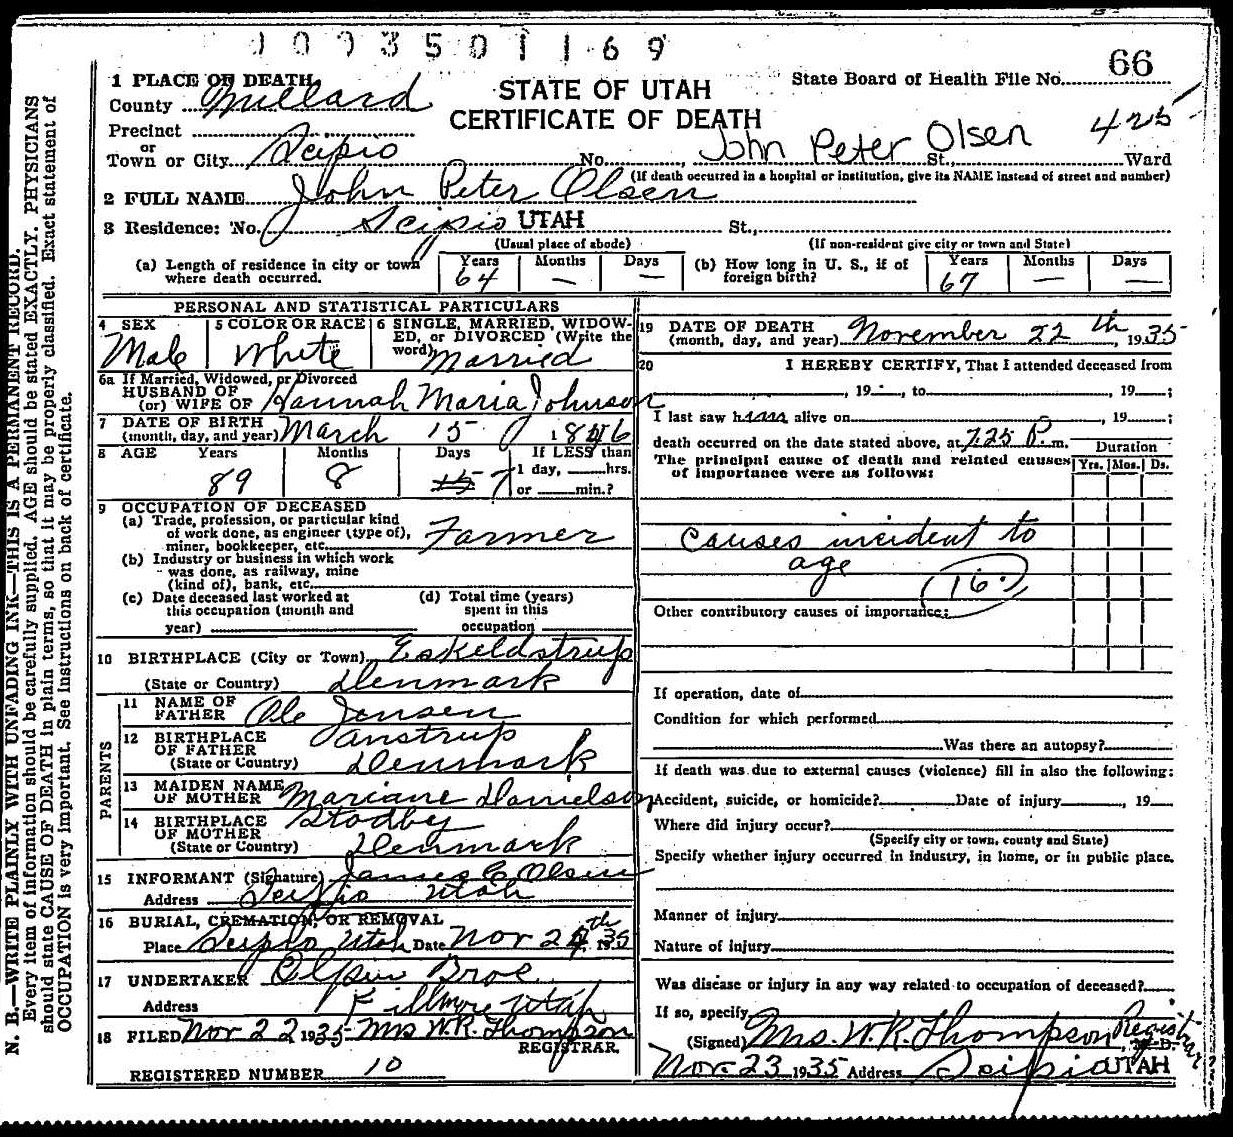 1003501169
1 PLACE OF DEATH
STATE OF UTAH
State Board of Health File No. 66
County Millard
CERTIFICATE OF DEATH
425
Precinct
or
Town or City Scipio No. , John Peter Olsen St., Ward
(If death occurred in a hospital or institution, give its NAME instead of street and number)
2 FULL NAME John Peter Olsen
3 Residence: No. Scipio UTAH St.,
(Usual place of abode) (If non-resident give city or town and State)
(a) Length of residence in city or town where death occurred. Years 64 Months — Days —
(b) How long in U. S., if of foreign birth? Years 67 Months — Days —
PERSONAL AND STATISTICAL PARTICULARS
4 SEX
Male
5 COLOR OR RACE
White
6 SINGLE, MARRIED, WIDOW-
ED, or DIVORCED (Write the
word) Married
6a If Married, Widowed, or Divorced
HUSBAND OF
(or) WIFE OF Hannah Maria Johnson
7 DATE OF BIRTH
(month, day, and year) March 15 1846
8 AGE Years Months Days If LESS than
89 8 15 7 1 day, hrs.
or min.?
9 OCCUPATION OF DECEASED
(a) Trade, profession, or particular kind
of work done, as engineer (type of), Farmer
miner, bookkeeper, etc.
(b) Industry or business in which work
was done, as railway, mine
(kind of), bank, etc.
(c) Date deceased last worked at
this occupation (month and
year)
(d) Total time (years)
spent in this
occupation
10 BIRTHPLACE (City or Town) Eskeldstrup
(State or Country) Denmark
PARENTS
11 NAME OF
FATHER Ole Jensen
12 BIRTHPLACE
OF FATHER
(State or Country) Denmark
13 MAIDEN NAME
OF MOTHER Mariane Danielson
14 BIRTHPLACE Stodby
OF MOTHER
(State or Country) Denmark
15 INFORMANT (Signature) James C Olsen
Address Scipio Utah
16 BURIAL, CREMATION, OR REMOVAL
Place Scipio Utah Date Nov 24th 1935
17 UNDERTAKER Olpin Bros
Address Fillmore Utah
18 FILED Nov 22 1935 Mrs W.R. Thompson
REGISTRAR.
REGISTERED NUMBER 10
19 DATE OF DEATH
(month, day, and year) November 22th, 1935
20 I HEREBY CERTIFY, That I attended deceased from
, 19 , to , 19 ;
I last saw him alive on , 19 ;
death occurred on the date stated above, at 7.25 P. m.
The principal cause of death and related causes
of importance were as follows:
Duration
Yrs. Mos. Ds.
Causes incident to
age
16.
Other contributory causes of importance:
If operation, date of
Condition for which performed
Was there an autopsy?
If death was due to external causes (violence) fill in also the following:
Accident, suicide, or homicide? Date of injury , 19
Where did injury occur?
(Specify city or town, county and State)
Specify whether injury occurred in industry, in home, or in public place.
Manner of injury
Nature of injury
Was disease or injury in any way related to occupation of deceased?
If so, specify
(Signed) Mrs. W.R. Thompson Registrar, M. D.
Nov. 23 1935 Address Scipio UTAH
N. B.—WRITE PLAINLY WITH UNFADING INK—THIS IS A PERMANENT RECORD.
Every item of information should be carefully supplied. AGE should be stated EXACTLY. PHYSICIANS
should state CAUSE OF DEATH in plain terms, so that it may be properly classified. Exact statement of
OCCUPATION is very important. See instructions on back of certificate.